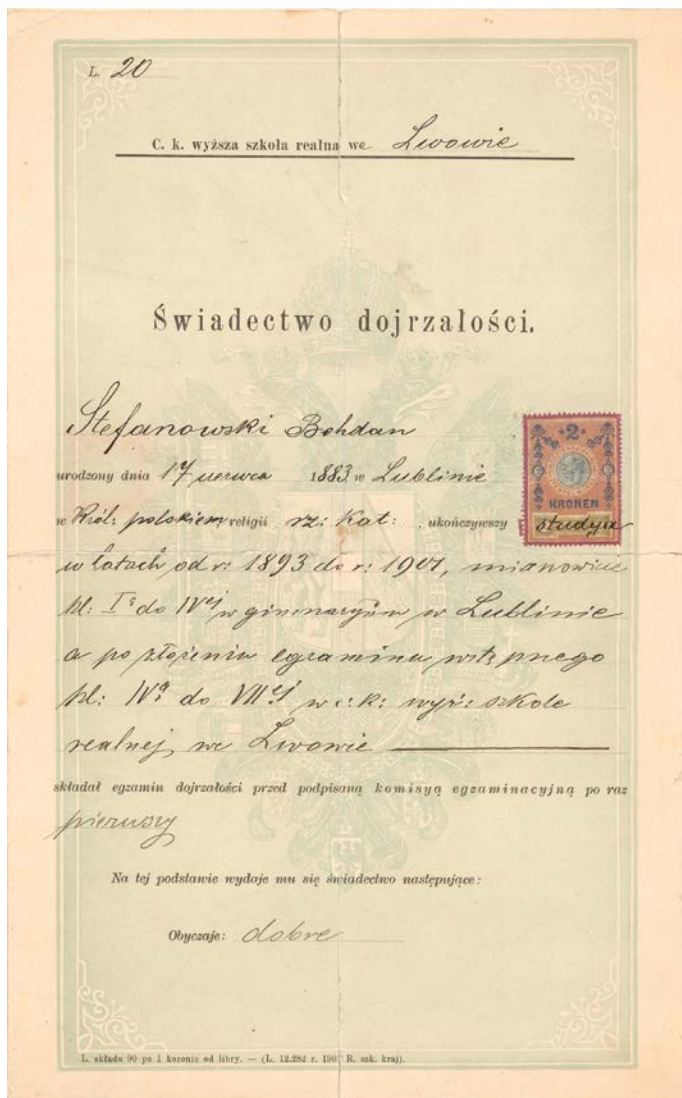 L. 20
C. k. wyższa szkoła realna we Lwowie
Świadectwo dojrzałości.
Stefanowski Bohdan
urodzony dnia 17 czerwca 1883 w Lublinie
w Król: polskiem religii rz: kat: , ukończywszy studyja
2
KRONEN
w latach od r: 1893 do r: 1901, mianowicie
kl: Ią do IVej w gimnazyum w Lublinie
a po złożeniu egzaminu wstępnego
kl: IVą do VIIej w c: k: wyż: szkole
realnej we Lwowie
składał egzamin dojrzałości przed podpisaną komisyą egzaminacyjną po raz
pierwszy
Na tej podstawie wydaje mu się świadectwo następujące:
Obyczaje: dobre
L. składu 90 po 1 koronie od libry. — (L. 12.282 r. 190 R. szk. kraj).